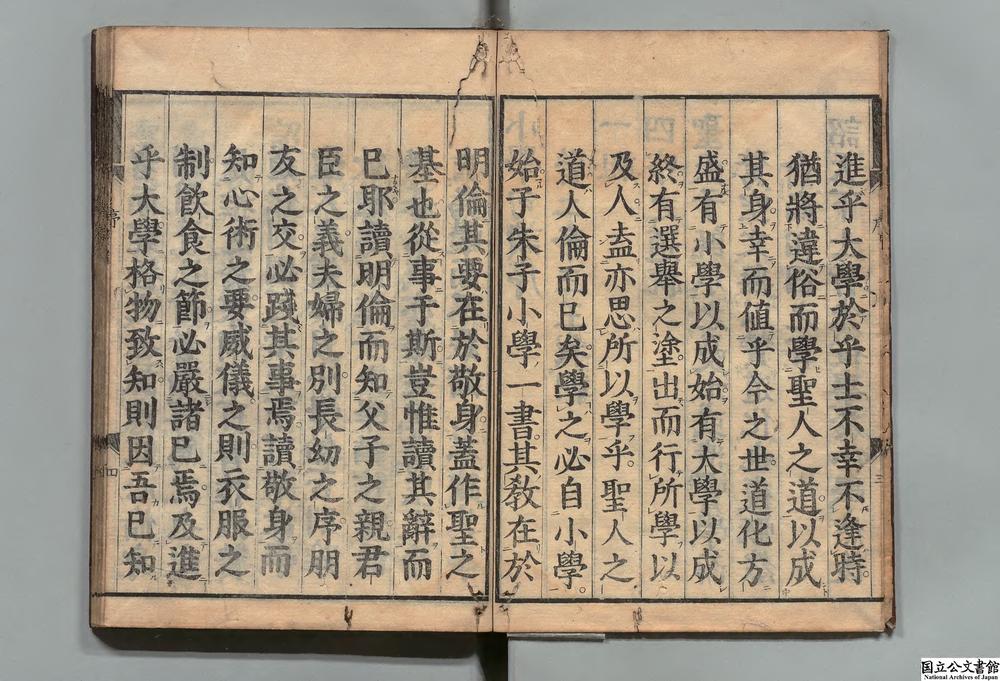 進乎大學於乎士不幸不逢時
猶將違俗而學聖人之道以成
其身幸而値乎今之世道化方
盛有小學以成始有大學以成
終有選舉之塗出而行所學以
及人盍亦思所以學乎聖人之
道人倫而已矣學之必自小學
始子朱子小學一書其敎在於
明倫其要在於敬身蓋作聖之
基也從事于斯豈惟讀其辭而
已耶讀明倫而知父子之親君
臣之義夫婦之別長幼之序朋
友之交必踐其事焉讀敬身而
知心術之要威儀之則衣服之
制飮食之節必嚴諸已焉及進
乎大學格物致知則因吾已知
序
三
四
国立公文書館
National Archives of Japan